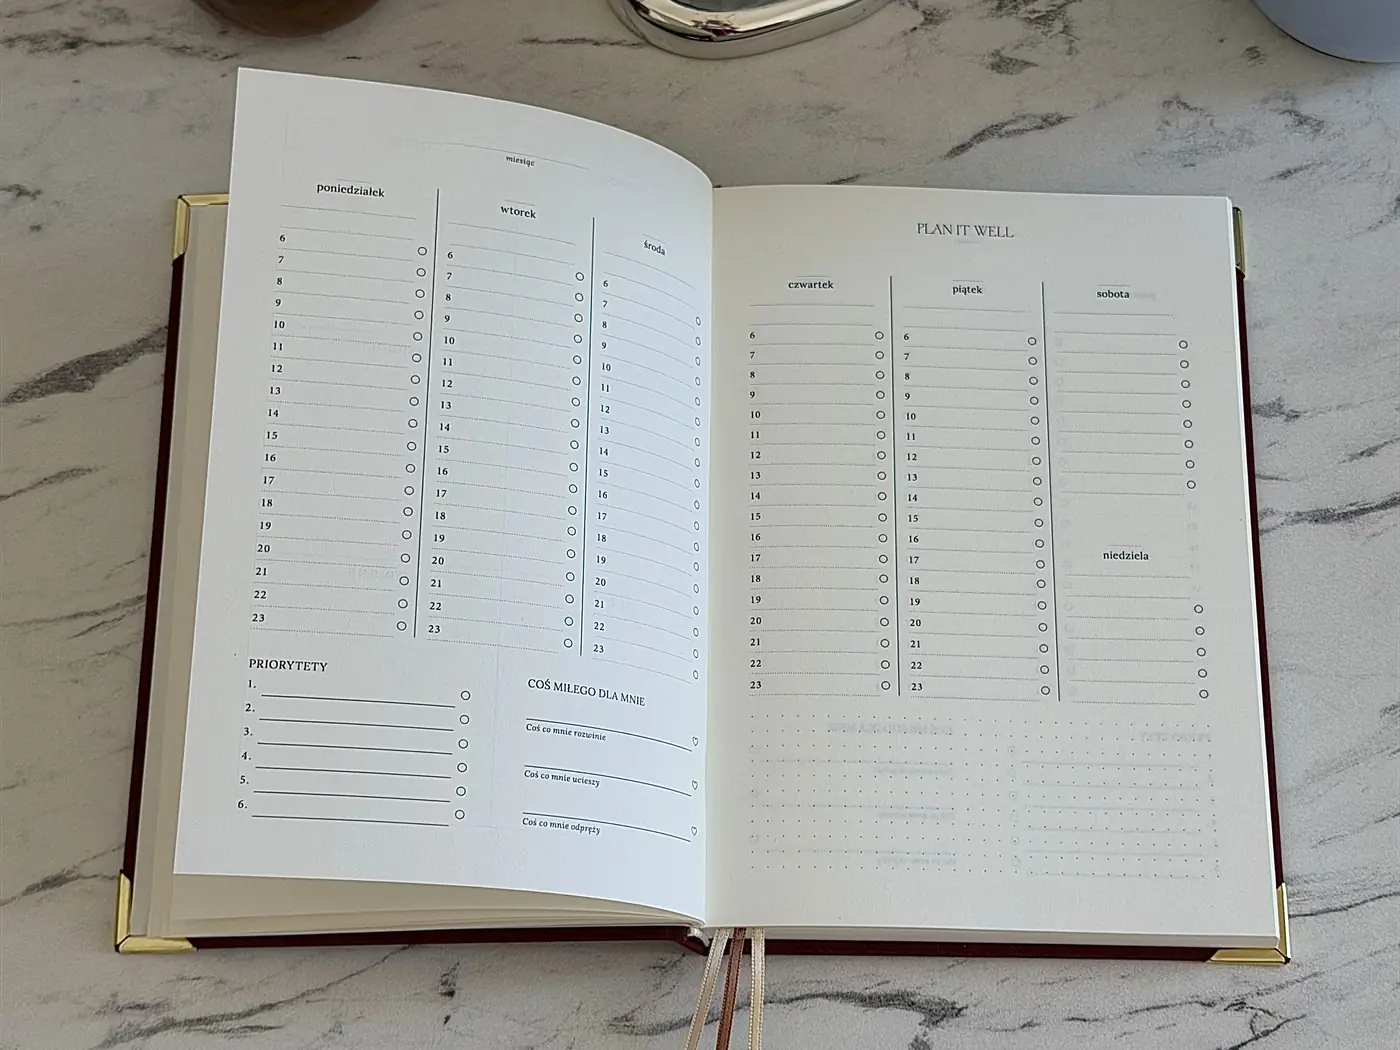 miesiąc
poniedziałek
6
7
8
9
10
11
12
13
14
15
16
17
18
19
20
21
22
23
wtorek
6
7
8
9
10
11
12
13
14
15
16
17
18
19
20
21
22
23
środa
6
7
8
9
10
11
12
13
14
15
16
17
18
19
20
21
22
23
PRIORYTETY
1.
2.
3.
4.
5.
6.
COŚ MIŁEGO DLA MNIE
Coś co mnie rozwinie
Coś co mnie ucieszy
Coś co mnie odpręży
PLAN IT WELL
czwartek
6
7
8
9
10
11
12
13
14
15
16
17
18
19
20
21
22
23
piątek
6
7
8
9
10
11
12
13
14
15
16
17
18
19
20
21
22
23
sobota
niedziela